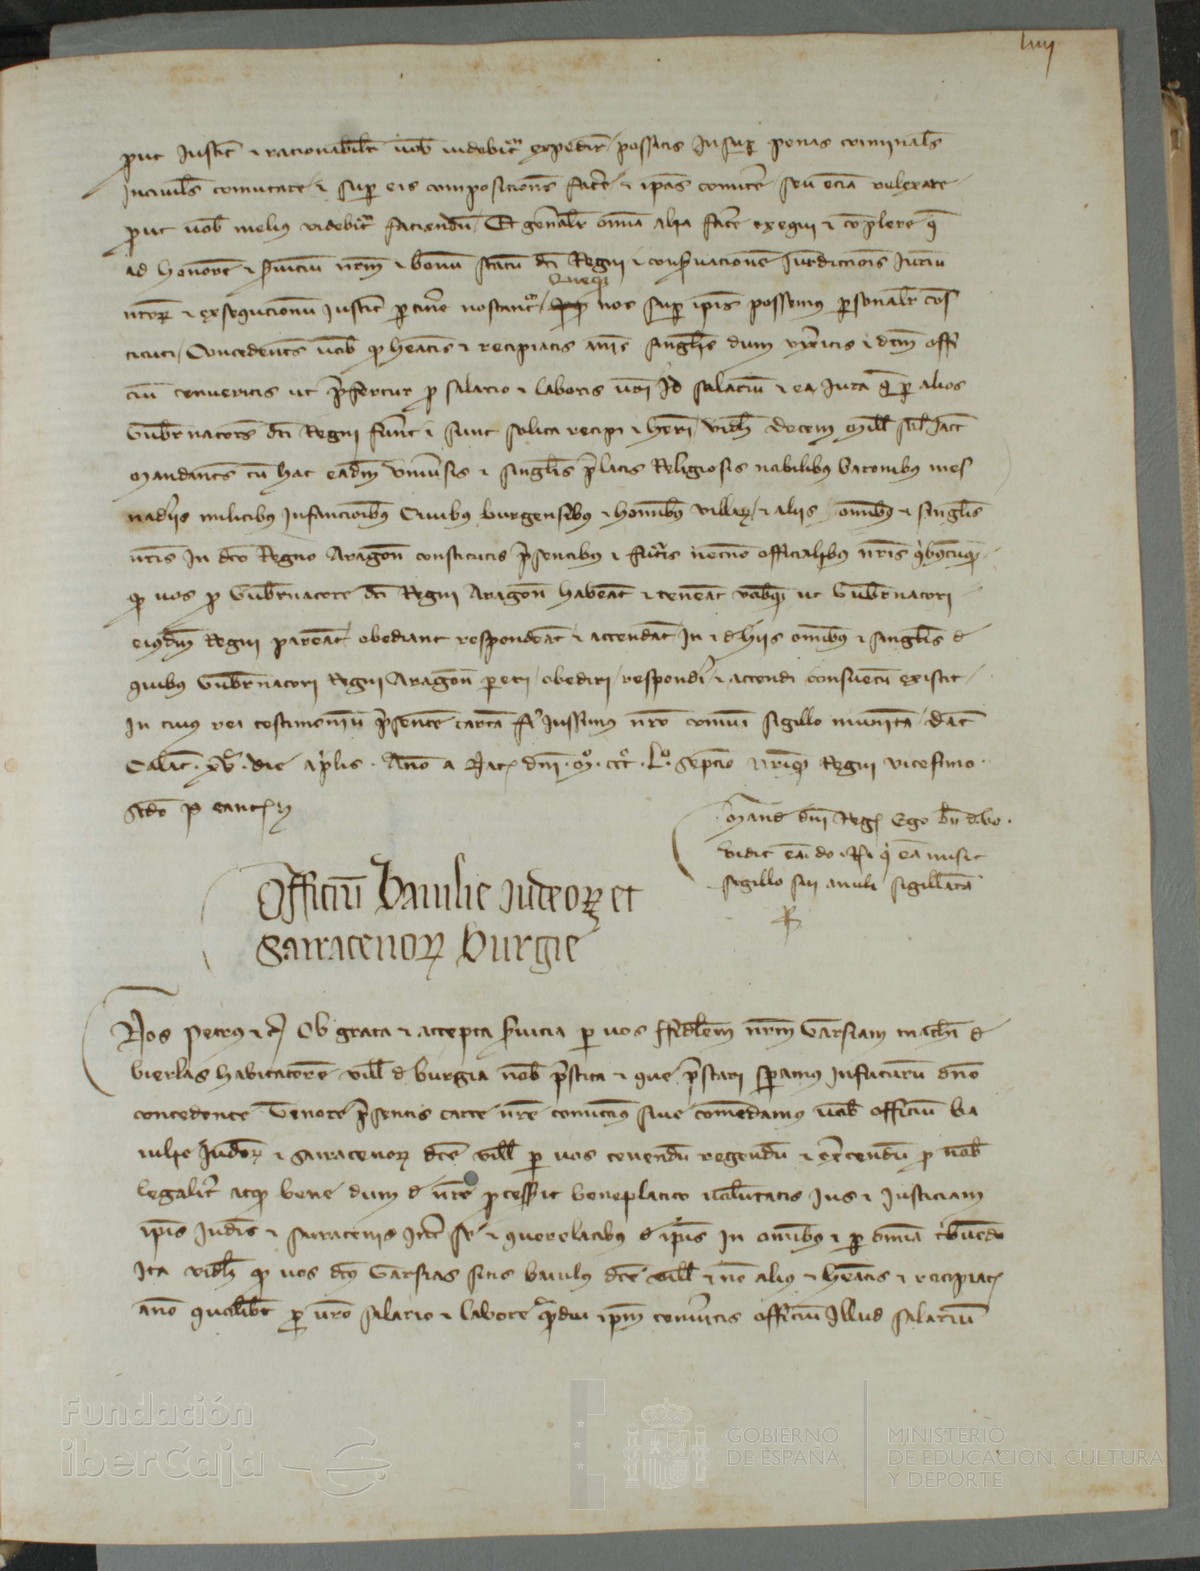 liiij
prout Justicie et racionabiliter vob videbitur expedire possitis Insuper penas criminales
In civiles comutare et super eis compositiones facere et ipas comittere seu ecia relexare
prout vob melius videbitur faciendum Et generaliter omnia alia facere exequi et complere que
ad honorem et servicium nrm et bonum statum dci Regni et conservacionem Jurisdiccionis Jurium
nrorum et exsequcionum Justicie pertinere noscantur queque nos super ipis possemus personaliter cons
tituti Concedentes vob quod heatis et recipiatis annis singulis dum vixeritis et dcm offi
cium tenueritis ut prefertur pro salario et laboris vri Id salarium et ea Jura que per alios
Gubernatores dci Regni fuerunt et sunt solita recipi et heri videlicet decem mill sol Jacc
Mandantes cum hac eadem universis et singulis prelatis Religiosis nobilibus baronibus mes
nadariis militibus Infancionibus Civibus burgensibus et hominibus villarum et aliis omnibus et singulis
nris In dco Regno Aragon constitutis presentibus et futuris necnon officialibus nris quibuscumque
quod vos pro Gubernatore dci Regni Aragon habeant et teneant vobisque ut Gubernatori
eiusdem Regni pareant obediant respondeant et attendant In et de hiis omnibus et singulis de
quibus Gubernatori Regni Aragon pareri obediri responderi et attendi consuetum existit
In cuius rei testimonium presentem cartam fieri Iussimus nro comuni sigillo munitam Dat
Calat. xv. die Aprilis. Anno a Nat dni. Mº. CCCº. Lº. septimo nrique Regni vicesimo.
scdo
Mand dni Reg Ego
vidit ea do. R qui ea misit
sigillo sui anuli sigillata
Officiu Baiulie Iudeorum et
Sarracenorum Burgie
Nos Petrus et c Ob grata et accepta servicia per vos ffidelem nrm Garsiam de
vierlas habitatorem ville de burgia nob prestita et que prestari speramus Infuturum dno
concedente Tenore presentis carte nre comittimus sive comendamus vob officium ba
iulie Iudeorum et sarracenorum dce ville per vos tenendum regendum et exercendum pro nob
legaliter atque bene dum de nre processerit beneplacito voluntatis Ius et Iusticiam
ipis Iudeis et sarracenis Inter se et querelantibus de ipis In omnibus et per omnia tribuendo
Ita videlicet quod vos dcus Garsias sitis baiulus dce ville et non alius et heatis et recipiatis
anno quolibet pro vro salario et labore quamdiu ipm tenueritis officium Illud salarium
Fundación
iberCaja
GOBIERNO
DE ESPAÑA
MINISTERIO
DE EDUCACIÓN, CULTURA
Y DEPORTE